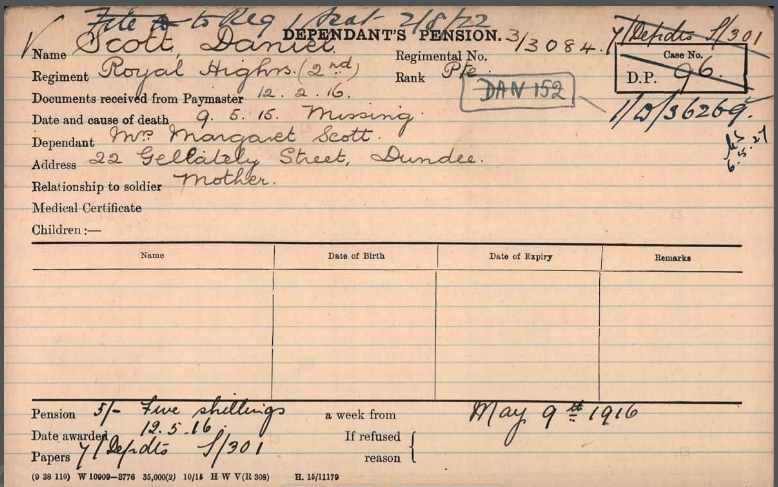 File to Reg 2/8/22
DEPENDANT'S PENSION.
Name Scott, Daniel
Regimental No. 3/3084.
7/Depdts S/301
Regiment Royal Highrs. (2nd)
Rank Pte.
Case No.
D.P. 96.
Documents received from Paymaster 12. 2. 16.
DAN 152
1/D/36269.
Date and cause of death 9. 5. 15. Missing.
Dependant Mrs Margaret Scott.
6.5.27
Address 22 Gellately Street, Dundee.
Relationship to soldier Mother.
Medical Certificate
Children :—
Name Date of Birth Date of Expiry Remarks
Pension 5/- Five shillings a week from May 9th 1916
Date awarded 12.5.16.
If refused
reason {
Papers 7/Depdts S/301
(9 38 110) W 10909—3776 35,000(2) 10/15 H W V(R 308) H. 15/11179